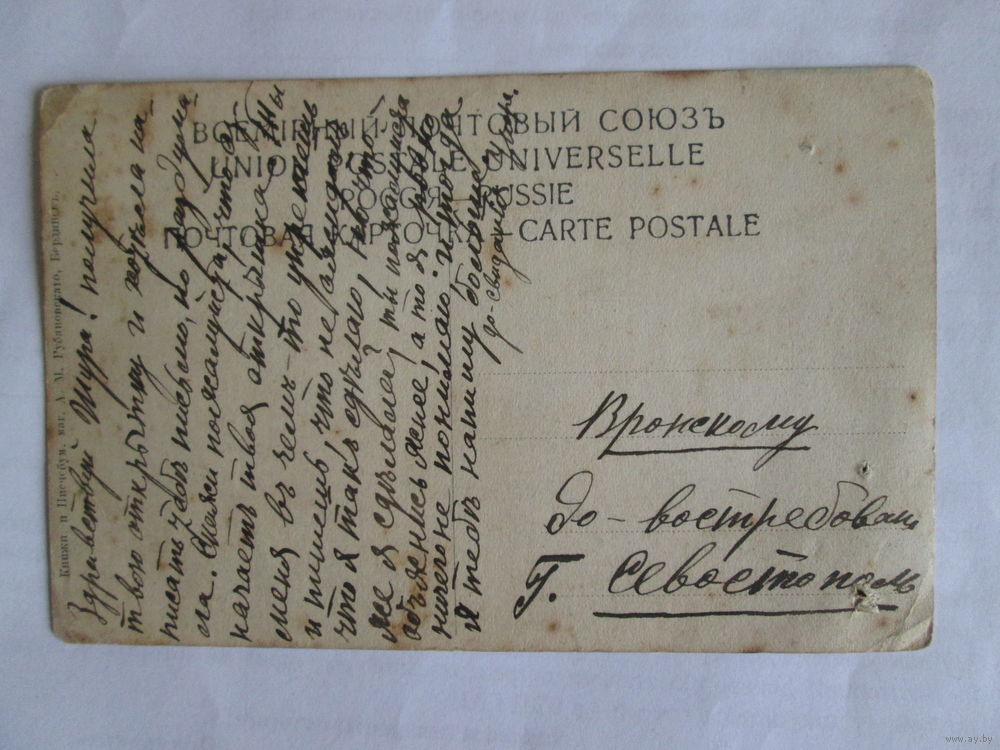 ВСЕМІРНЫЙ ПОЧТОВЫЙ СОЮЗЪ
UNION POSTALE UNIVERSELLE
РОССІЯ — RUSSIE
ПОЧТОВАЯ КАРТОЧКА — CARTE POSTALE
Книжн. и Писчебум. маг. А. М. Рубановскаго, Бердянскъ.
Здравствуй Шура! получила
твою открытку и хотела на-
писать тебе письмо, но раздума
ла. Скажи пожалуйста что оз-
начаетъ твоя открытка. Ты
меня въ чемъ-то упрекаешь
и пишешь что не ожидалъ
что я такъ сделаю, но что
же я сделала? ты пожалуйста
объяснись яснее, а то я ровно
ничего не понимаю и тогда
я тебе напишу больше
до-свидания Шура.
Вронскому
до-востребован
Г. Севостополь
www.ay.by